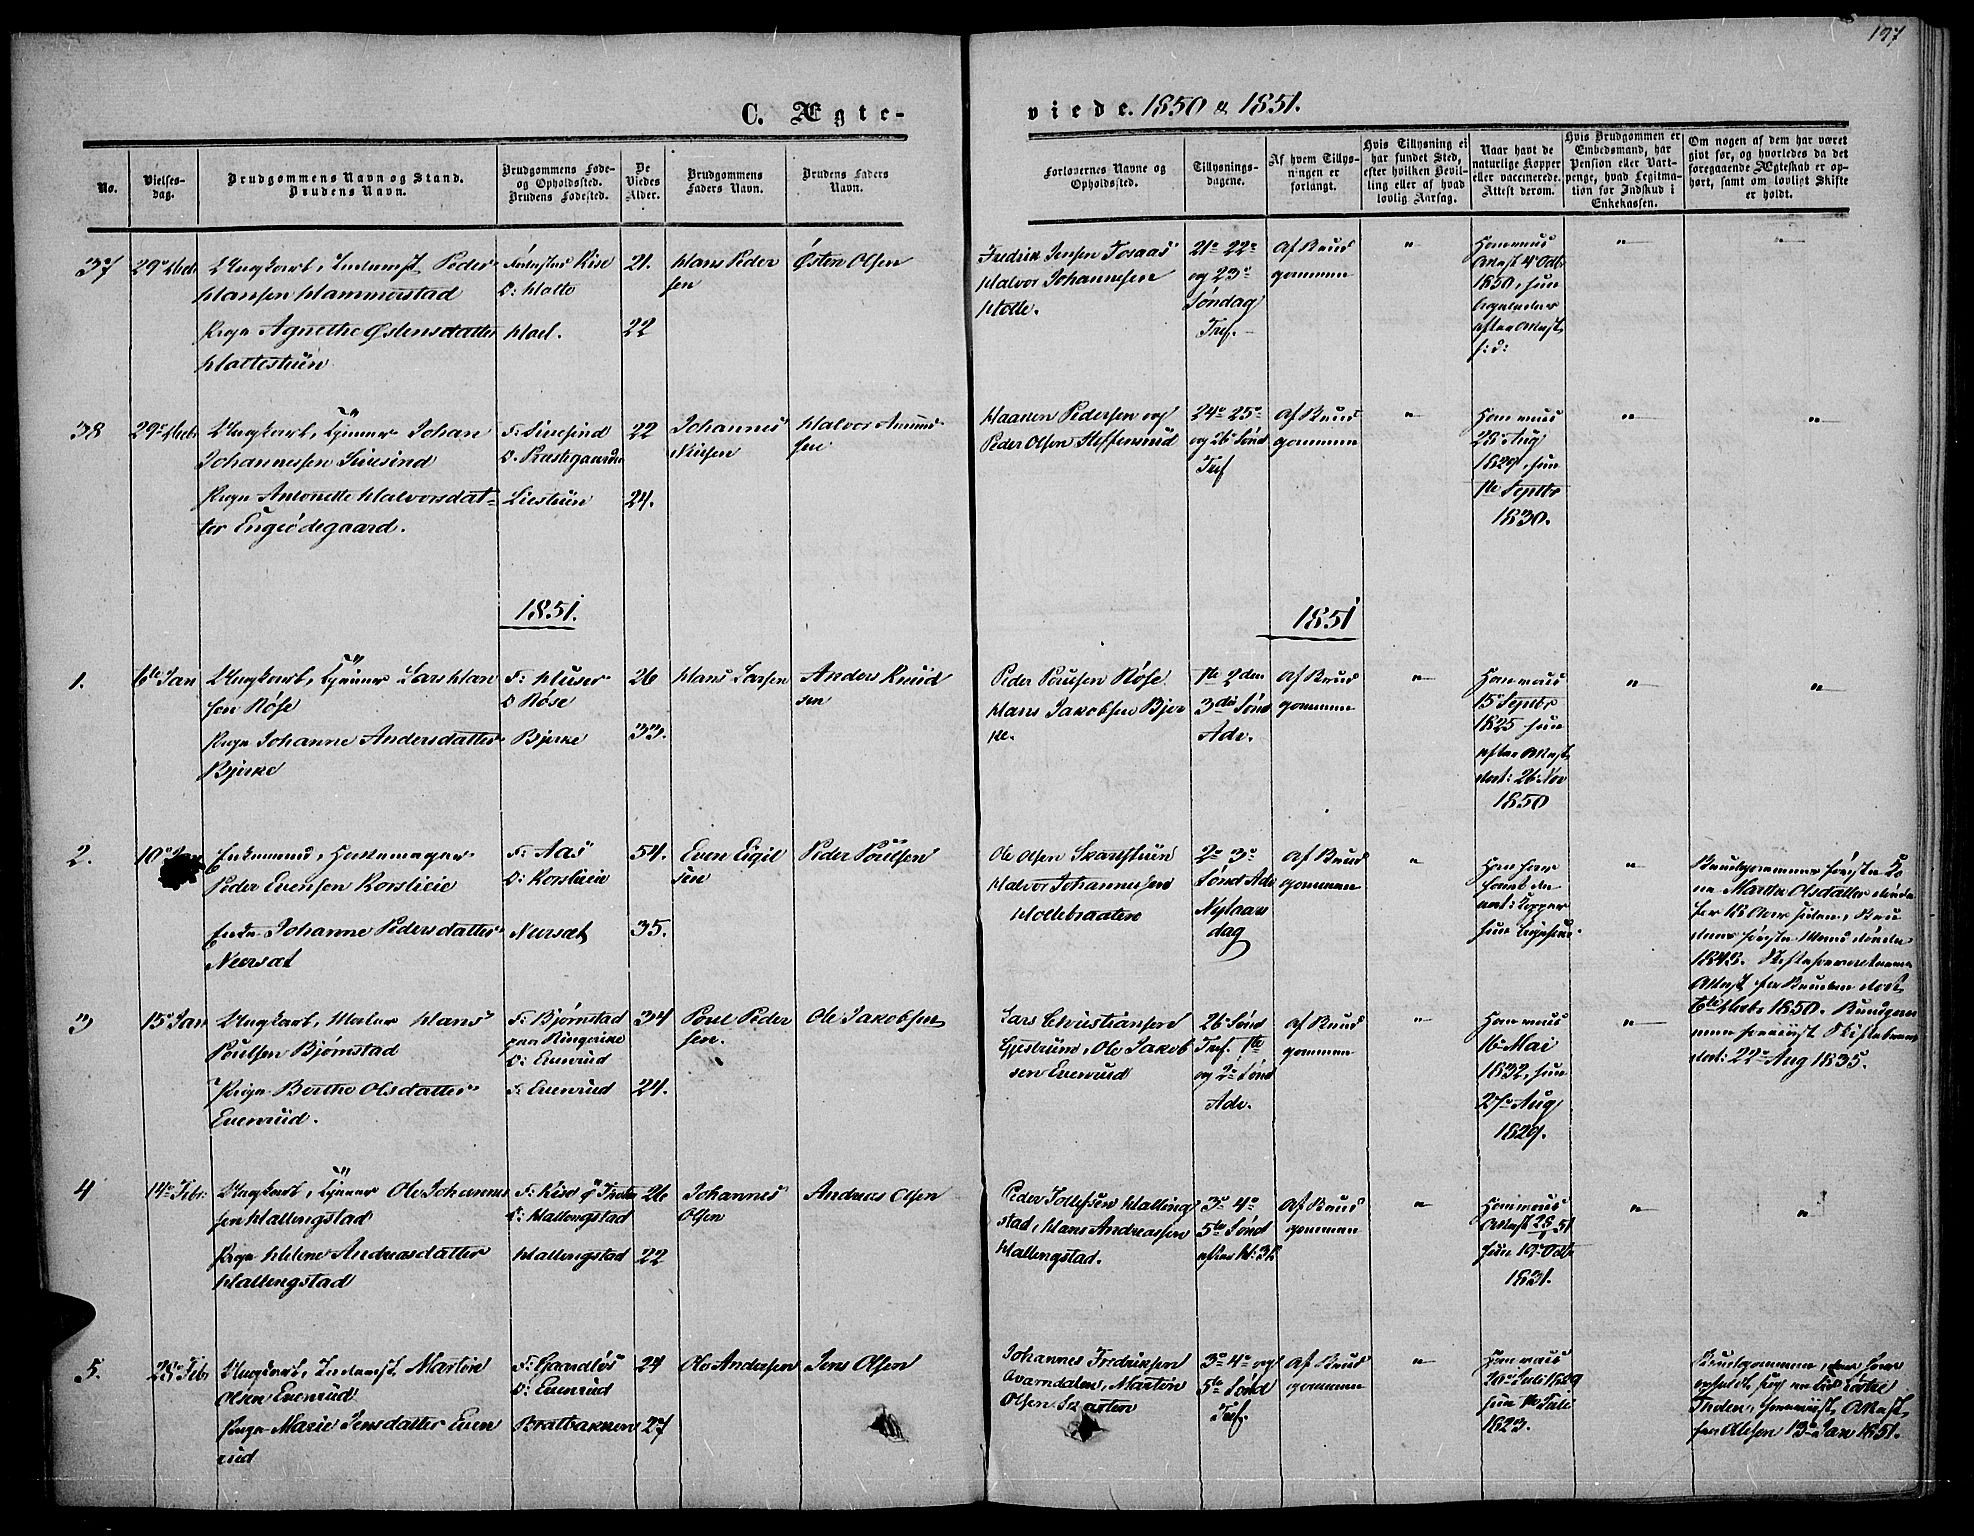 197
C. Ægte-
viede. 1850 & 1851.
No.
Vielses-
dag.
Brudgommens Navn og Stand.
Brudens Navn.
Brudgommens Føde-
og Opholdssted.
Brudens Fødested.
De
Viedes
Alder.
Brudgommens
Faders Navn.
Brudens Faders
Navn.
Forlovernes Navne og
Opholdssted.
Tillysnings-
dagene.
Af hvem Tillys-
ningen er
forlangt.
Hvis Tillysning ei
har fundet Sted,
efter hvilken Bevil-
ling eller af hvad
lovlig Aarsag.
Naar havt de
naturlige Kopper
eller vaccinerede.
Attest derom.
Hvis Brudgommen er
Embedsmand, har
Pension eller Vart-
penge, hvad Legitima-
tion for Indskud i
Enkekassen.
Om nogen af dem har været
givt før, og hvorledes da det
foregaaende Ægteskab er op-
hørt, samt om lovligt Skifte
er holdt.
37
Ungkarl, Inderst Peder
Hansen Hammerstad
Pige Agnethe Østensdatter
Hattestuen
21.
22
Hans Peder
sen
Østen Olsen
Fredrik Jensen Tosaas
Halvor Johannesen
Holte.
21de 22de
og 23de
Søndag
Tref.
Af Brud
gommen
1850, hun
38
Ungkarl, Tjener Johan
Johannessen Sinsind
Pige Antonette Halvorsdat-
ter Engeødegaard.
O. Præstegaarden
Liestuen
22
24.
Johannes
Nilsen
Halvor Amund
sen
Haaken Pedersen og
Peder Olsen Steffensrud
24de 25de
og 26 Sønd
Tref
Af Brud
gommen
1829, hun
1te Septbr
1830.
1851.
1851
1.
6te Jan
Ungkarl, Tjener Lars Han
sen Røse
Pige Johanne Andersdatter
Bjerke
F: Huser
O Røse
Bjerke
26
33.
Hans Larsen
Anders Knud
sen
Peder Poulsen Røse
Hans Jakobsen Bjer
ke.
1te 2den
3die Sønd
Adv.
Af Brud
gommen
15 Septbr
1825 hun
efter Attest
dat: 26 Nov
1850
2.
10de Jan
Enkemand, Huusmand
Peder Evensen Korslieie
Enke Johanne Pedersdatter
Neersæt
F: Aas
O: Korslieie
Neersæt
54.
35.
Even Eigil
sen
Peder Poulsen
Ole Olsen Skarstuen
Halvor Johannesen
Hollebraaten
2de 3de
Sønd Adv
Nytaars
dag
Af Brud
gommen
Brudgommens første Ko
ne Marthe Olsdatter døde
for 16 Aar siden, Bru
dens første Mand døde
1843. Skifteforvalterens
Attest for Bruden dat.
1850. Brudgom
mens foreviist Skiftebrev
dat: 22de Aug 1835.
3
15de Jan
Ungkarl, Maler Hans
Poulsen Bjørnstad
Pige Berthe Olsdatter
Evenrud.
F: Bjørnstad
paa Ringerike
O: Evenrud
F: Evenrud
34
24.
Poul Peder
sen.
Ole Jakobsen
Lars Christiansen
Gjestrum, Ole Jakob
sen Evenrud
26 Sønd
Tref. 1te
og 2de Sønd
Adv.
Af Brud
gommen
16 Mai
1832, hun
27de Aug
1829.
4
14de Febr:
Ungkarl, Tjener Ole Johannes
sen Hallengstad
Pige Helene Andreasdatter
Hallengstad
O: Hallengstad
Hallengstad
26
22
Johannes
Olsen
Andreas Olsen
Peder Tollefsen Halling
stad, Hans Andreassen
Hallengstad.
3de 4de
5te Sønd
efter H: 3K
Af Brud
gommen
1831.
5.
25de Feb
Ungkarl, Inderst Martin
Olsen Evenrud
Pige Marie Jensdatter Even
rud
F: Gaardløs
O: Evenrud
Bratbakken
24
27
Ole Andersen
Jens Olsen
Johannes Fredriksen
Qvarndalen, Martin
Olsen Skarten
3de 4de og
5te Sønd
Tref.
Af Brud
gommen
20de Juli 1829
hun 1te Juli
1823.
Brudgommen, der har
fra Olesen 13de Jan 1851.